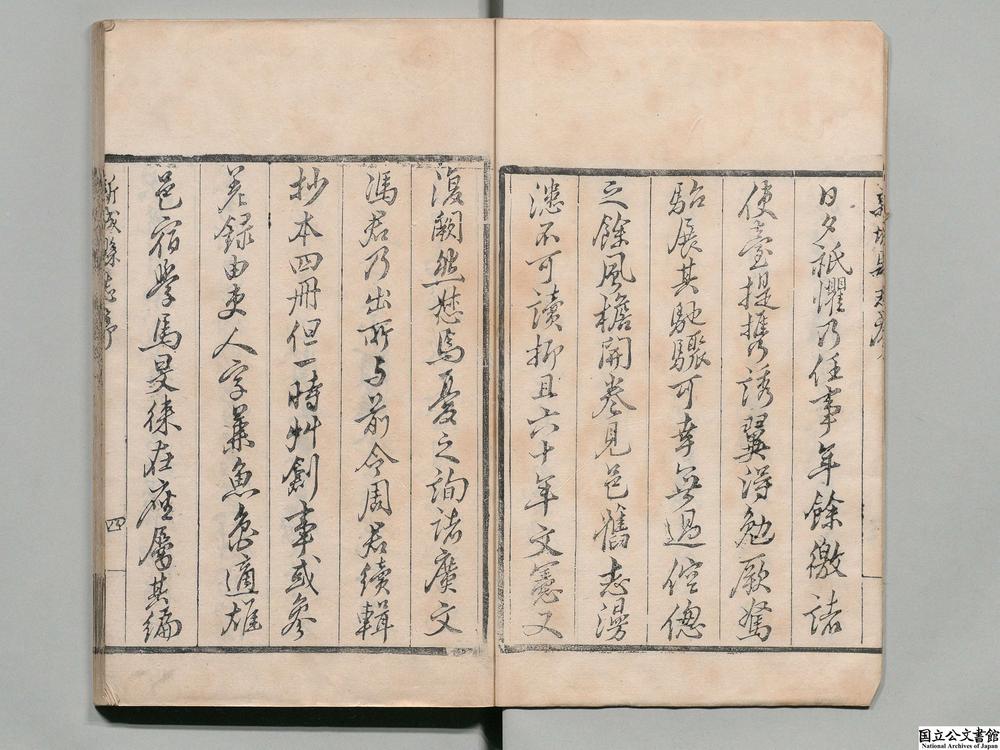 日夕祇懼乃任事年餘徼諸
使臺提攜誘翼得勉厥駑
駘展其馳驟可幸無過倥傯
之餘風檐開卷見邑舊志漫
漶不可讀抑且六十年文憲又
復闕然愁焉憂之詢諸廣文
馮君乃出所与前令周君續輯
抄本四冊但一時艸創事或參
差錄由吏人字兼魚魯適雄
邑宿學馬旻徠在座屬其編
新城縣志序
四
国立公文書館
National Archives of Japan